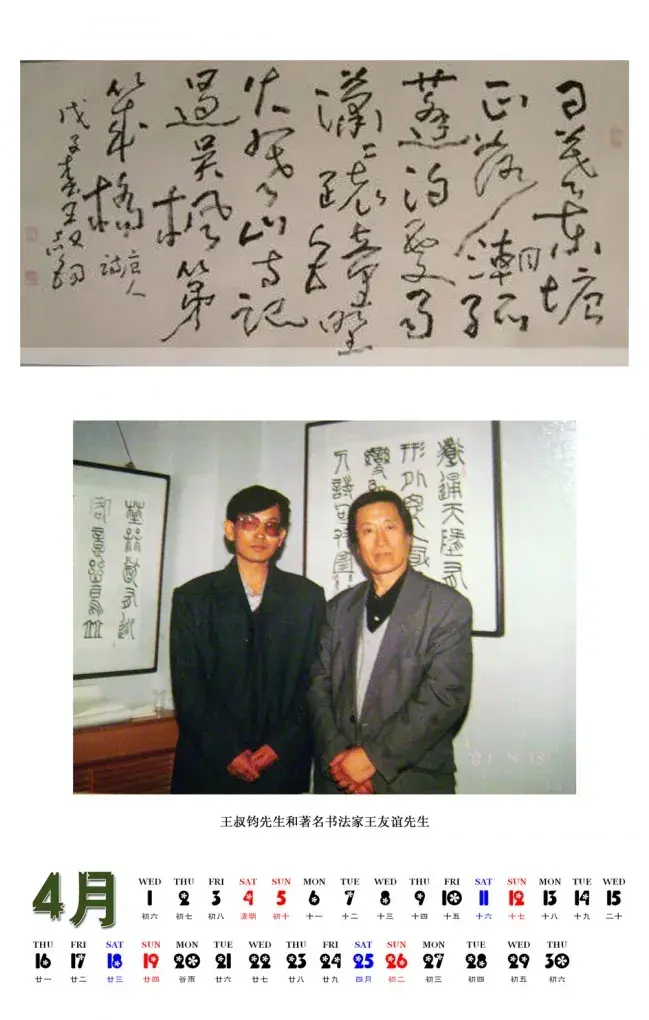 日暮东塘
正落潮孤
篷泊处雨
潇潇疏钟夜
火寒山寺记
过吴枫第
几桥
唐人诗
戊子春王叔钧
'01 4 13
王叔钧先生和著名书法家王友谊先生
4月
WED THU FRI SAT SUN MON TUE WED THU FRI SAT SUN MON TUE WED
1 2 3 4 5 6 7 8 9 10 11 12 13 14 15
初六 初七 初八 清明 初十 十一 十二 十三 十四 十五 十六 十七 十八 十九 二十
THU FRI SAT SUN MON TUE WED THU FRI SAT SUN MON TUE WED THU
16 17 18 19 20 21 22 23 24 25 26 27 28 29 30
廿一 廿二 廿三 廿四 谷雨 廿六 廿七 廿八 廿九 四月 初二 初三 初四 初五 初六